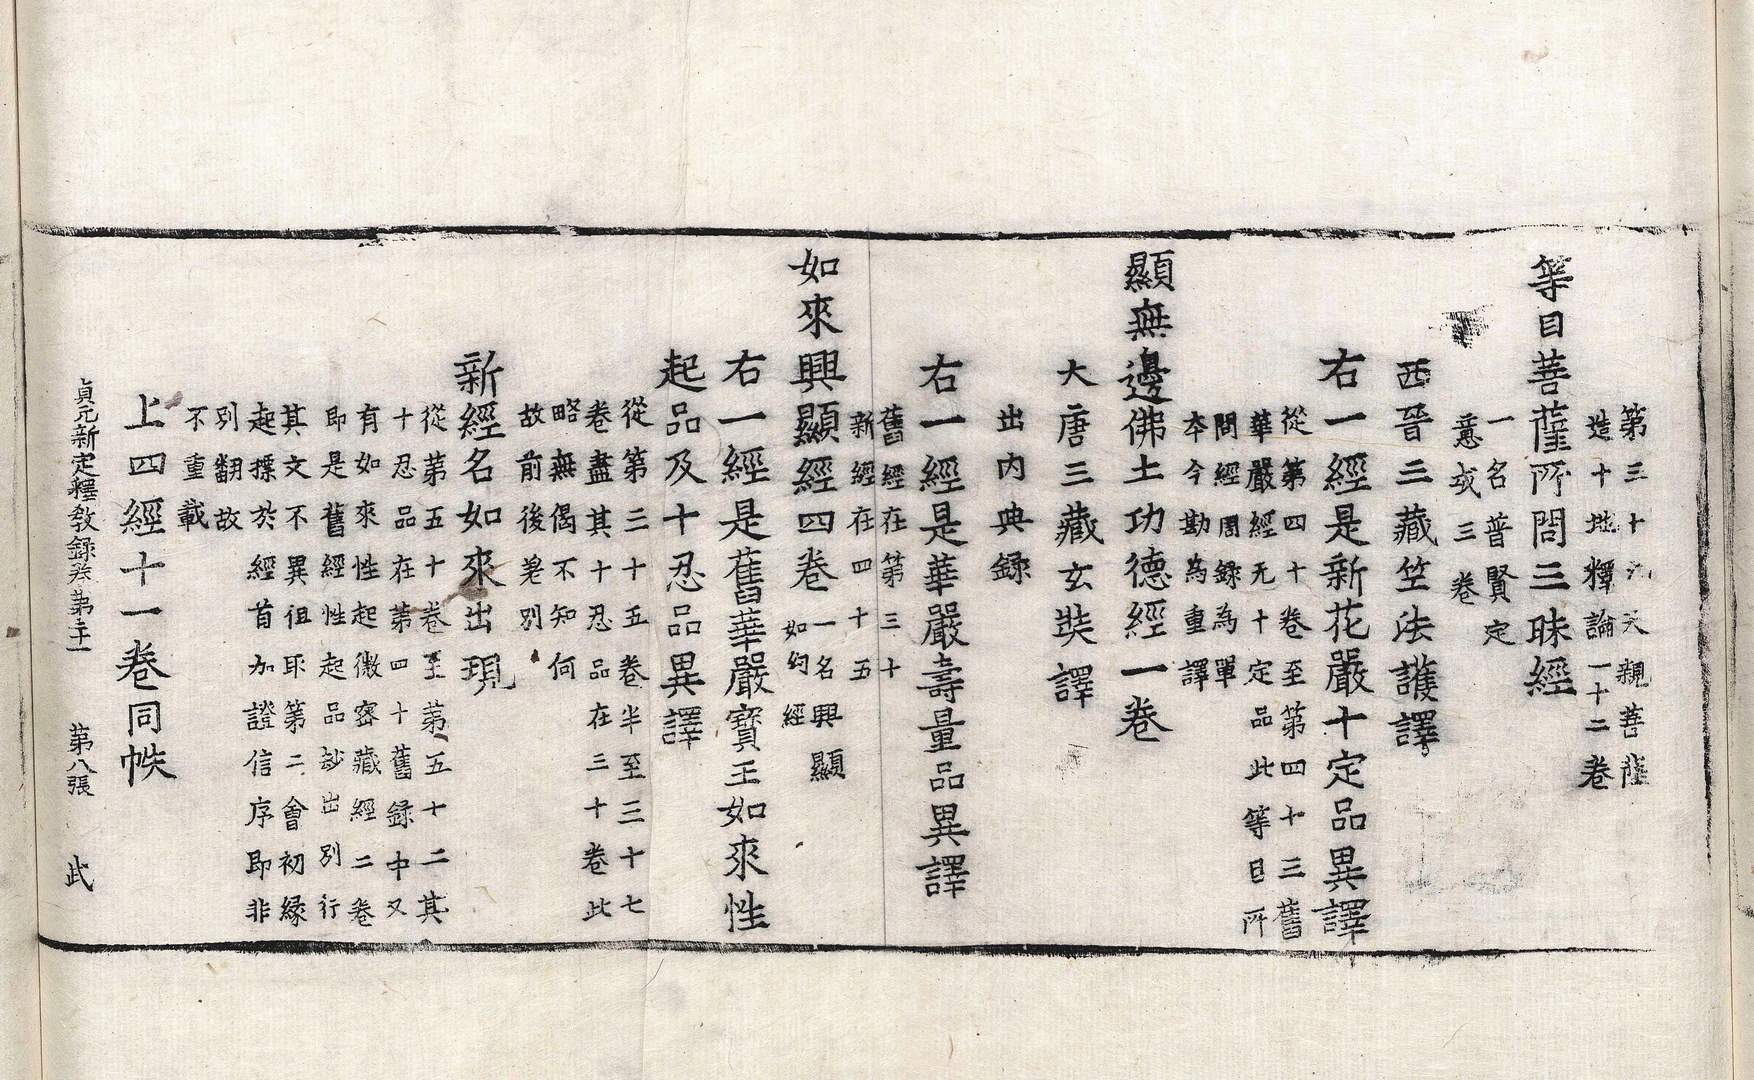 第三十九天親菩薩
造十地釋論一十二卷
等目菩薩所問三昧經
一名普賢定
意或三卷
西晉三藏竺法護譯
右一經是新花嚴十定品異譯
從第四十卷至第四十三舊
華嚴經无十定品此等目所
問經周錄為單
本今勘為重譯
顯無邊佛土功德經一卷
大唐三藏玄奘譯
出內典錄
右一經是華嚴壽量品異譯
舊經在第三十
新經在四十五
如來興顯經四卷
一名興顯
如幻經
右一經是舊華嚴寶王如來性
起品及十忍品異譯
從第三十五卷半至三十七
卷盡其十忍品在三十卷此
略無偈不知何
故前後差別
新經名如來出現
從第五十卷至第五十二其
十忍品在第四十舊錄中又
有如來性起微密藏經二卷
即是舊經性起品抄出別行
其文不異徂耴第二會初緣
起摽於經首加證信序即非
別翻故
不重載
上四經十一卷同帙
貞元新定釋教錄卷第二十一 第八張 武